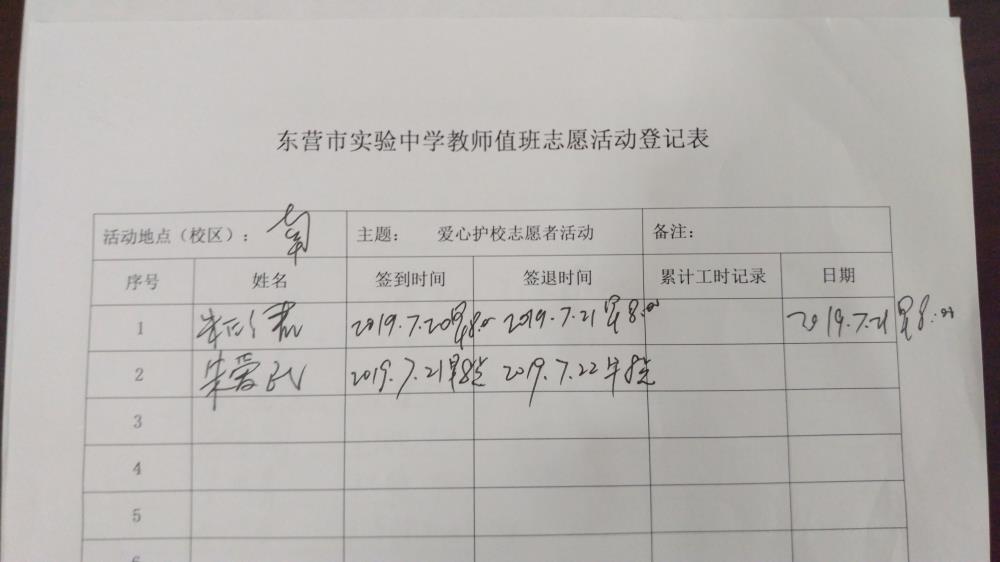 东营市实验中学教师值班志愿活动登记表
活动地点（校区）： 南 主题： 爱心护校志愿者活动 备注：
序号 姓名 签到时间 签退时间 累计工时记录 日期
1 2019.7.20早8:00 2019.7.21早8:00 2019.7.21早8:00
2 朱爱民 2019.7.21早8点 2019.7.22早8点
3
4
5
6